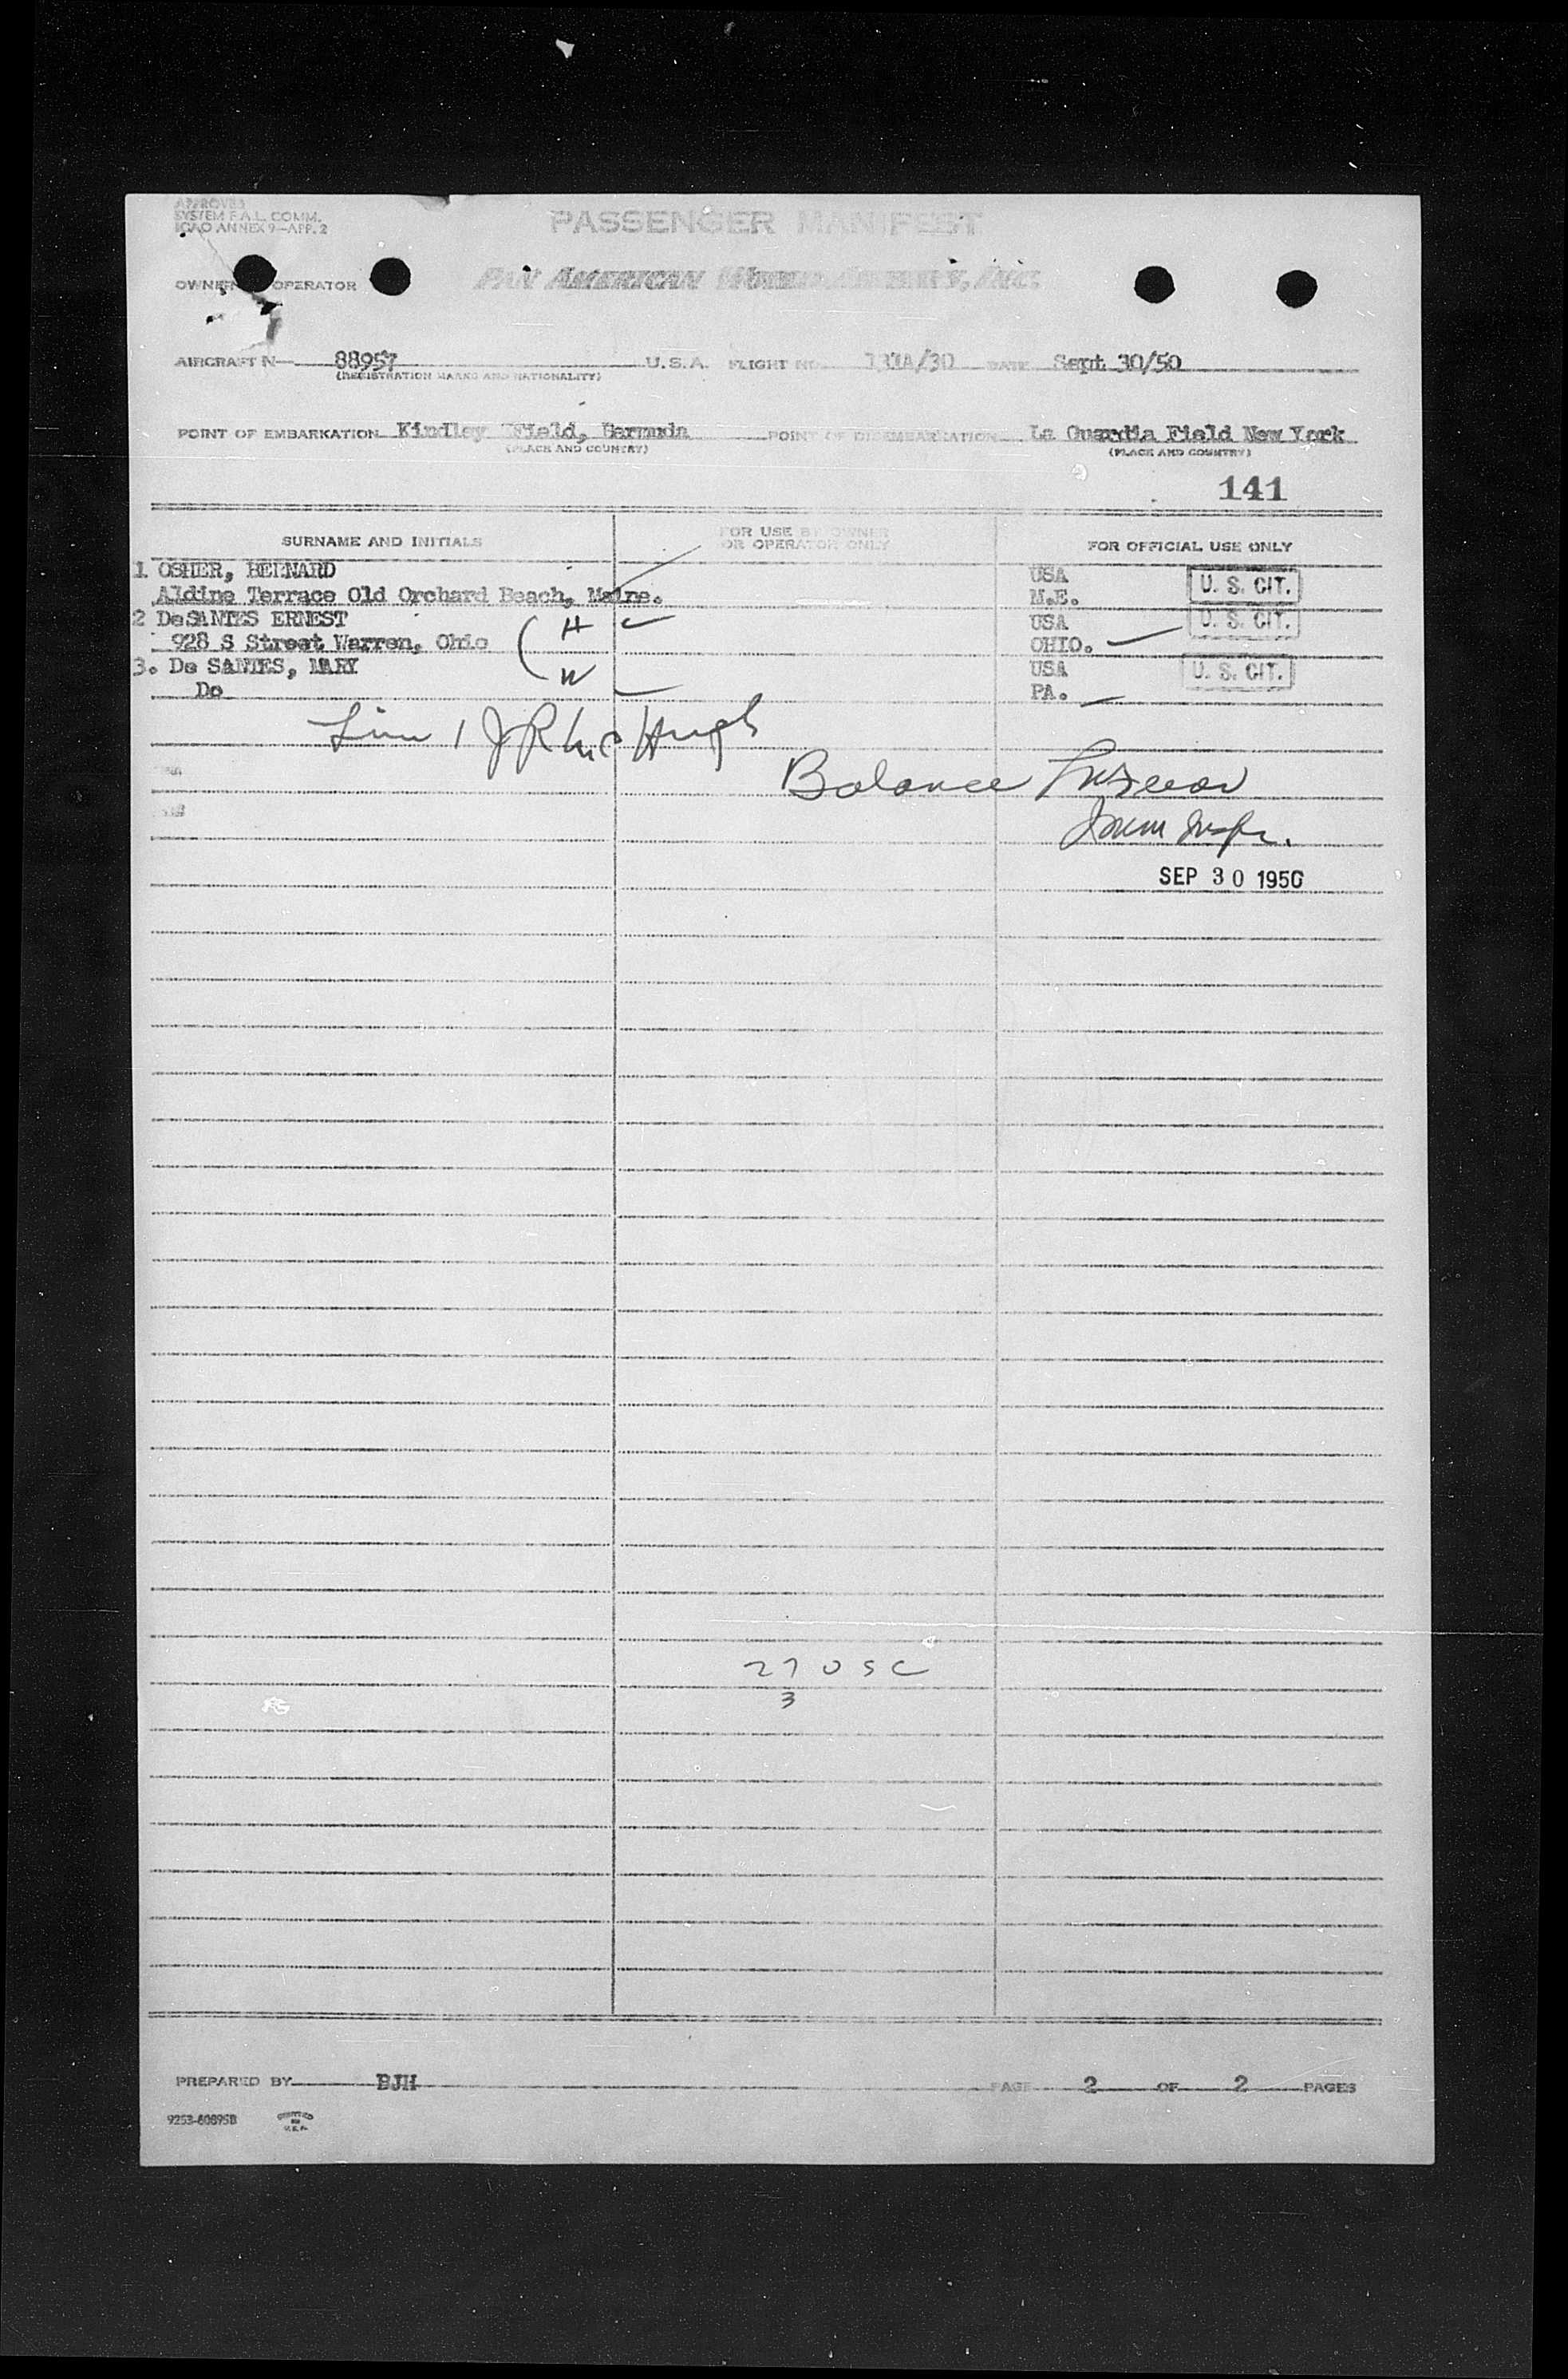 APPROVED
SYSTEM F.A.L. COMM.
ICAO ANNEX 9—APP. 2
PASSENGER MANIFEST
OPERATOR PAN AMERICAN INC.
AIRCRAFT N— 88957 U.S.A. FLIGHT NO. DATE Sept 30/50
(REGISTRATION MARKS AND NATIONALITY)
POINT OF EMBARKATION Kindley Field, Bermuda POINT OF DISEMBARKATION La Guardia Field New York
(PLACE AND COUNTRY) (PLACE AND COUNTRY)
141
SURNAME AND INITIALS FOR USE BY OWNER OR OPERATOR ONLY FOR OFFICIAL USE ONLY
1 OSHER, BERNARD USA U. S. CIT.
Aldine Terrace Old Orchard Beach, Maine. M.E.
2 DeSANTES ERNEST H USA U. S. CIT.
928 S Street Warren, Ohio OHIO.
3. De SANTES, MARY W USA U. S. CIT.
Do PA.
Line 1 J R McHugh
Balance
Imm Inspr.
SEP 30 1950
27 USC
3
PREPARED BY BJH PAGE 2 OF 2 PAGES
9253-60895B PRINTED IN U.S.A.